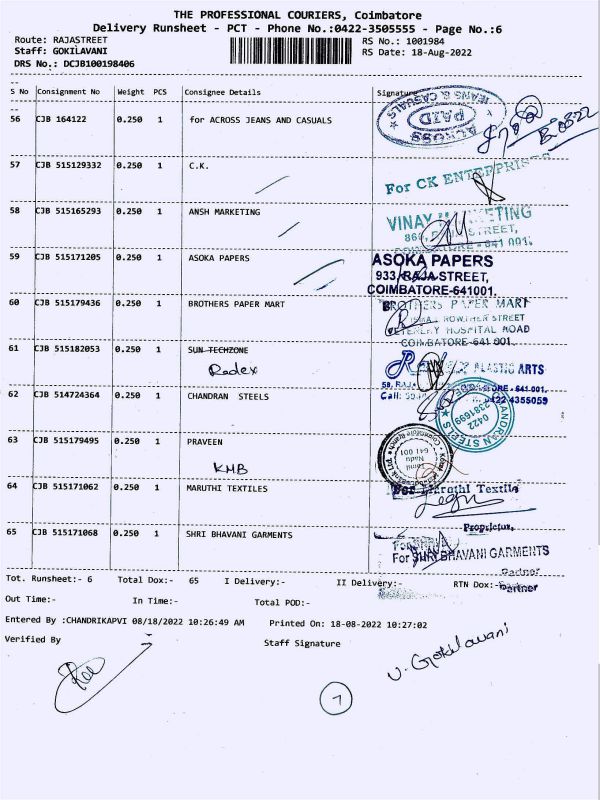 THE PROFESSIONAL COURIERS, Coimbatore
Delivery Runsheet - PCT - Phone No.:0422-3505555 - Page No.:6
Route: RAJASTREET
RS No.: 1001984
Staff: GOKILAVANI
RS Date: 18-Aug-2022
DRS No.: DCJB100198406
S No Consignment No Weight PCS Consignee Details Signature
56 CJB 164122 0.250 1 for ACROSS JEANS AND CASUALS
ACROSS JEANS & CASUALS PAID
57 CJB 515129332 0.250 1 C.K.
For CK ENTERPRISES
58 CJB 515165293 0.250 1 ANSH MARKETING
VINAY MARKETING
STREET,
COIMBATORE-641 001.
59 CJB 515171205 0.250 1 ASOKA PAPERS
ASOKA PAPERS
933, RAJA STREET,
COIMBATORE-641001.
60 CJB 515179436 0.250 1 BROTHERS PAPER MART
BROTHERS PAPER MART
ROWTHER STREET
HOSPITAL ROAD
COIMBATORE-641 001.
61 CJB 515182053 0.250 1 SUN TECHZONE
Radex
PLASTIC ARTS
COIMBATORE-641 001.
0422 4355059
62 CJB 514724364 0.250 1 CHANDRAN STEELS
CHANDRAN STEELS
0422 2381699
63 CJB 515179495 0.250 1 PRAVEEN
KMB
Tamil Nadu
641 001
64 CJB 515171062 0.250 1 MARUTHI TEXTILES
For Maruthi Textils
Proprietor.
65 CJB 515171068 0.250 1 SHRI BHAVANI GARMENTS
For SHRI BHAVANI GARMENTS
Partner
Partner
Tot. Runsheet:- 6 Total Dox:- 65 I Delivery:- II Delivery:- RTN Dox:-
Out Time:- In Time:- Total POD:-
Entered By :CHANDRIKAPVI 08/18/2022 10:26:49 AM Printed On: 18-08-2022 10:27:02
Verified By Staff Signature
V. Gokilavani
7